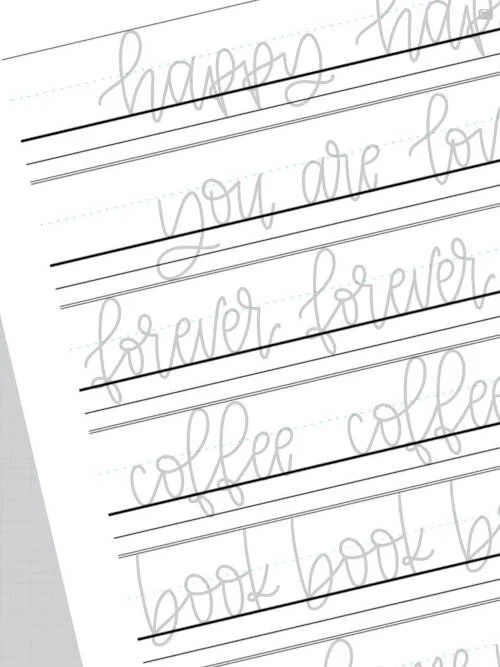 happy hap
you are lov
forever forever
coffee coffee
book book b